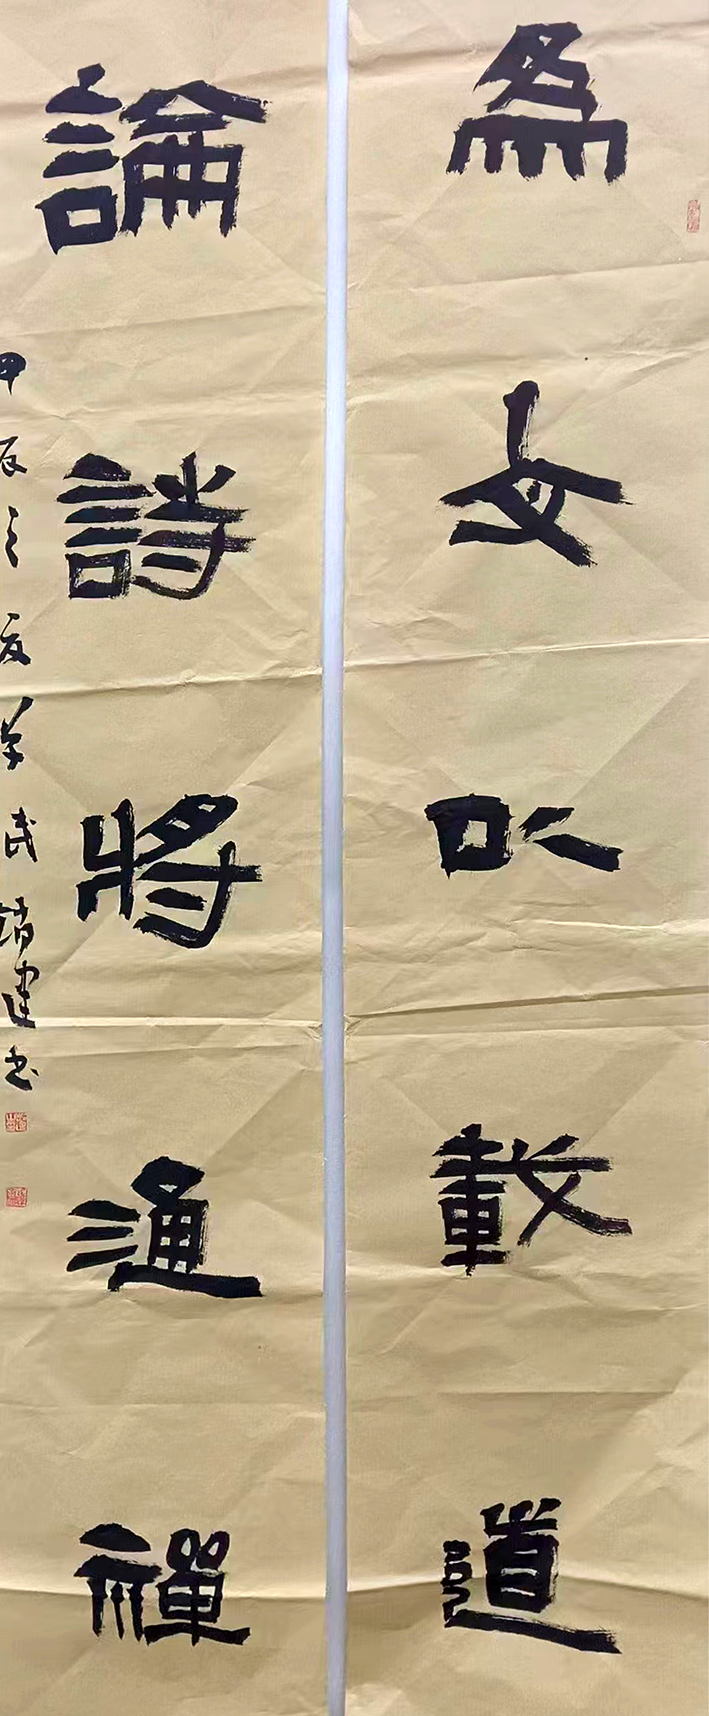 為文以載道
論詩將通禪
甲辰之夏建书